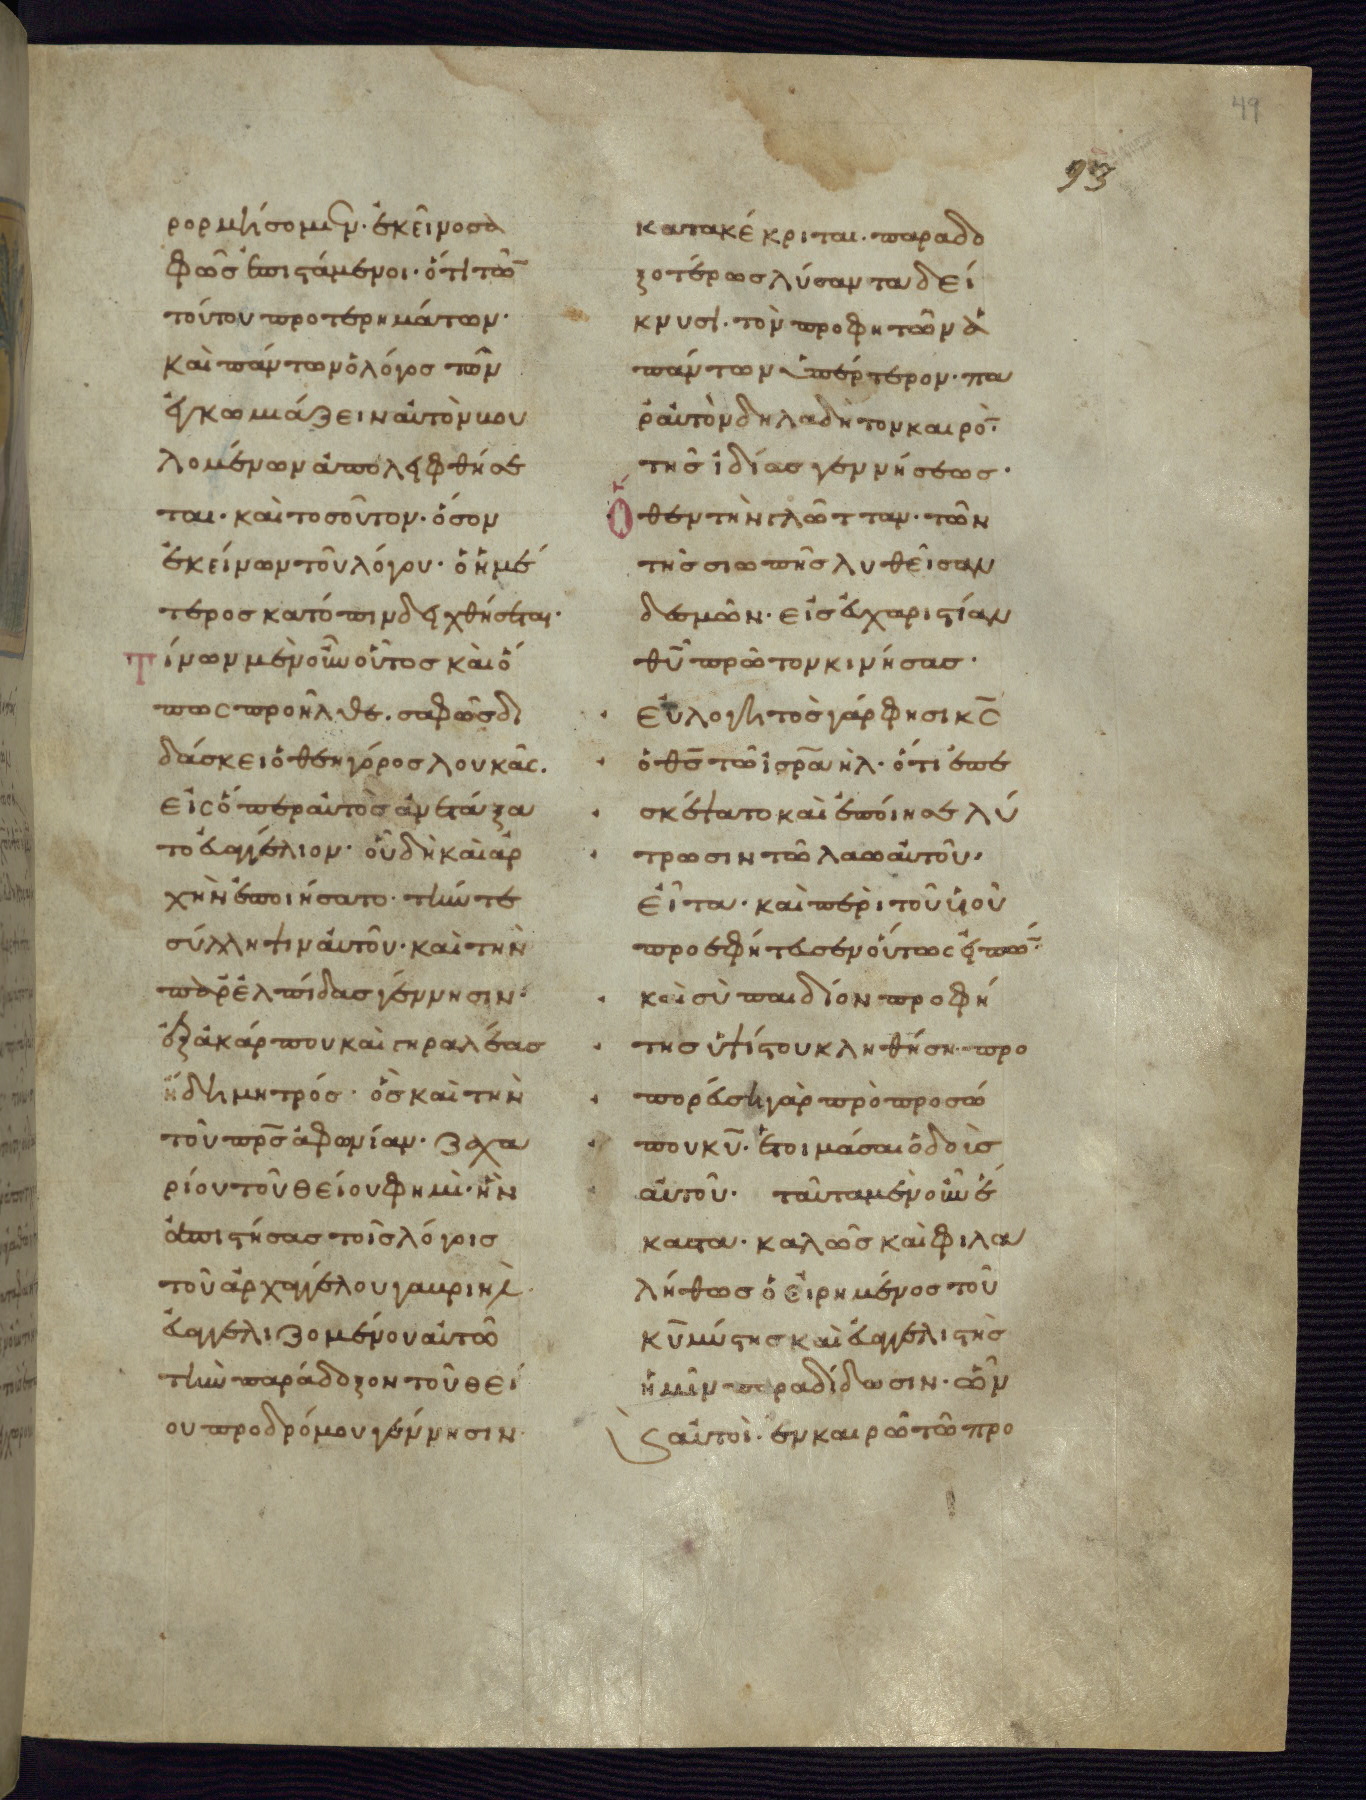 49
93
ρον μνήσομεν· ἐκεῖνο σα
φῶς ἐπιστάμενοι· ὅτι τῶ̅
τούτου προτερημάτων·
καὶ πάντων ὁ λόγος τῶν
ἐγκωμιάζειν αὐτὸν βου
λομένων ἀπολειφθήσε
ται· καὶ τοσοῦτον· ὅσον
ἐκείνων τοῦ λόγου· ὁ ἡμέ
τερος κατόπιν δειχθήσεται·
Τίνων μὲν οὖν οὗτος καὶ ὅ
πως προῆλθε. σαφῶς δι
δάσκει ὁ θεηγόρος λουκᾶς.
εἰς ὅπερ αὐτὸς ἀνετάξα
το εὐαγγέλιον· οὗ δὴ καὶ ἀρ
χὴν ἐποιήσατο· τήν τε
σύλληψιν αὐτοῦ· καὶ τὴν
παρ' ἐλπίδας γέννησιν·
ἐξ ἀκάρπου καὶ γηραλέας
ἤδη μητρός· ὃς καὶ τὴν
τοῦ πρ̅ς ἀφωνίαν· ζαχα
ρίου τοῦ θείου φημὶ· ἣν
ἀπιστήσας τοῖς λόγοις
τοῦ ἀρχαγγέλου γαβριὴλ·
εὐαγγελιζομένου αὐτῶ
τὴν παράδοξον τοῦ θεί
ου προδρόμου γέννησιν·
κατακέκριται· παραδο
ξοτέρως λύσαντα δεί
κνυσι· τὸν προφητῶν ἁ
πάντων ὑπέρτερον· πα
ρ' αὐτὸν δηλαδὴ τὸν καιρὸ̅·
τῆς ἰδίας γεννήσεως·
Ὅθεν τὴν γλῶτταν· τῶν
τῆς σιωπῆς λυθεῖσαν
δεσμῶν· εἰς εὐχαριστίαν
θυ̅ πρῶτον κινήσας·
εὐλογητὸς γάρ φησι κ̅ς
ὁ θ̅ς τῶ ἰσρα̅ὴλ· ὅτι ἐπε
σκέψατο καὶ ἐποίησε λύ
τρωσιν τῶ λαῶ αὐτοῦ·
εἶτα· καὶ περὶ τοῦ υἱοῦ
προεφήτευσεν οὕτως εἰπώ̅·
καὶ σὺ παιδίον προφή
της ὑψίστου κληθήση· προ
πορεύση γὰρ πρὸ προσώ
που κυ̅· ἑτοιμάσαι ὁδοὺς
αὐτοῦ· ταῦτα μὲν οὖν ἕ
καστα· καλῶς καὶ φιλα
λήθως ὁ εἰρημένος τοῦ
κυ̅ μύστης καὶ εὐαγγελιστὴς
ἡμῖν παραδίδωσιν· ὧν
ϗ αὐτοὶ· ἐν καιρῶ τῶ προ